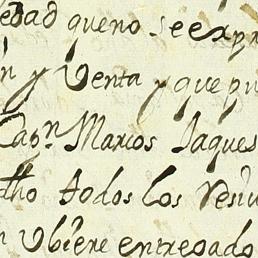 edad que no se expr
n y Venta y que pu
Capn Marcos Jaques
dho todos los Vesin
n Ubiere entregado